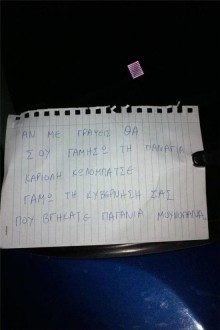 ΑΝ ΜΕ ΓΡΑΨΕΙΣ ΘΑ
ΣΟΥ ΓΑΜΗΣΩ ΤΗ ΠΑΝΑΓΙΑ
ΚΑΡΙΟΛΗ ΚΩΛΟΜΠΑΤΣΕ
ΓΑΜΩ ΤΗ ΚΥΒΕΡΝΗΣΗ ΣΑΣ
ΠΟΥ ΒΓΗΚΑΤΕ ΠΑΓΑΝΙΑ ΜΟΥΝΟΠΑΝΑ